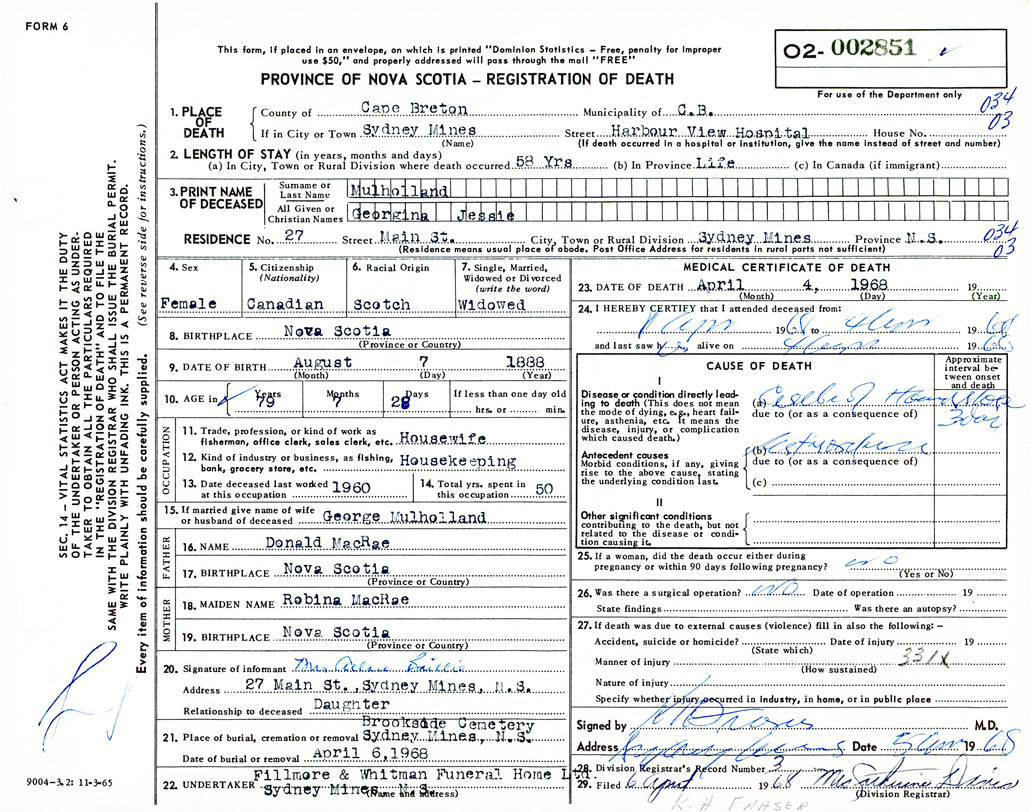 FORM 6
This form, if placed in an envelope, on which is printed "Dominion Statistics – Free, penalty for improper
use $50," and properly addressed will pass through the mail "FREE"
PROVINCE OF NOVA SCOTIA – REGISTRATION OF DEATH
02- 002851
For use of the Department only
034
03
1. PLACE OF DEATH { County of Cape Breton Municipality of C.B.
If in City or Town Sydney Mines Street Harbour View Hospital House No.
(Name) (If death occurred in a hospital or institution, give the name instead of street and number)
2. LENGTH OF STAY (in years, months and days)
(a) In City, Town or Rural Division where death occurred 58 Yrs (b) In Province Life (c) In Canada (if immigrant)
3. PRINT NAME OF DECEASED Surname or Last Name Mulholland
All Given or Christian Names Georgina Jessie
RESIDENCE No. 27 Street Main St. City, Town or Rural Division Sydney Mines Province N.S.
(Residence means usual place of abode. Post Office Address for residents in rural parts not sufficient)
034
03
4. Sex Female
5. Citizenship (Nationality) Canadian
6. Racial Origin Scotch
7. Single, Married, Widowed or Divorced (write the word) Widowed
8. BIRTHPLACE Nova Scotia
(Province or Country)
9. DATE OF BIRTH August 7 1888
(Month) (Day) (Year)
10. AGE in Years 79 Months 7 Days 28 If less than one day old
hrs. or min.
OCCUPATION
11. Trade, profession, or kind of work as
fisherman, office clerk, sales clerk, etc. Housewife
12. Kind of industry or business, as fishing,
bank, grocery store, etc. Housekeeping
13. Date deceased last worked at this occupation 1960
14. Total yrs. spent in this occupation 50
15. If married give name of wife
or husband of deceased George Mulholland
FATHER
16. NAME Donald MacRae
17. BIRTHPLACE Nova Scotia
(Province or Country)
MOTHER
18. MAIDEN NAME Robina MacRae
19. BIRTHPLACE Nova Scotia
(Province or Country)
20. Signature of informant Mrs Allan Baillie
Address 27 Main St., Sydney Mines, N.S.
Relationship to deceased Daughter
Brookside Cemetery
21. Place of burial, cremation or removal Sydney Mines, N.S.
Date of burial or removal April 6,1968
22. UNDERTAKER Fillmore & Whitman Funeral Home Ltd.
Sydney Mines, N.S.
(Name and address)
MEDICAL CERTIFICATE OF DEATH
23. DATE OF DEATH April 4, 1968 19
(Month) (Day) (Year)
24. I HEREBY CERTIFY that I attended deceased from:
1968 to 4 Apr 1968
and last saw h alive on 4 Apr 1968
CAUSE OF DEATH
Approximate interval between onset and death
I
Disease or condition directly leading to death (This does not
mean the mode of dying, e.g., heart failure, asthenia, etc. It means the
disease, injury, or complication which caused death.)
(a) Cerebral
due to (or as a consequence of)
3 day
Antecedent causes
Morbid conditions, if any, giving rise to the above cause, stating
the underlying condition last.
(b)
due to (or as a consequence of)
(c)
II
Other significant conditions
contributing to the death, but not related to the disease or condition causing it.
25. If a woman, did the death occur either during
pregnancy or within 90 days following pregnancy? no
(Yes or No)
26. Was there a surgical operation? no Date of operation 19
State findings Was there an autopsy?
27. If death was due to external causes (violence) fill in also the following: –
Accident, suicide or homicide? Date of injury 19
(State which)
Manner of injury 331X
(How sustained)
Nature of injury
Specify whether injury occurred in industry, in home, or in public place
Signed by M.D.
Address Sydney Mines Date 5 Apr 1968
28. Division Registrar's Record Number 3
29. Filed 6 April 1968 Mrs Catherine
(Division Registrar)
K. H FRASER
SEC. 14 – VITAL STATISTICS ACT MAKES IT THE DUTY
OF THE UNDERTAKER OR PERSON ACTING AS UNDER-
TAKER TO OBTAIN ALL THE PARTICULARS REQUIRED
IN THE "REGISTRATION OF DEATH" AND TO FILE THE
SAME WITH THE DIVISION REGISTRAR WHO SHALL ISSUE THE BURIAL PERMIT.
WRITE PLAINLY WITH UNFADING INK. THIS IS A PERMANENT RECORD.
Every item of information should be carefully supplied. (See reverse side for instructions.)
9004-3.2: 11-3-65